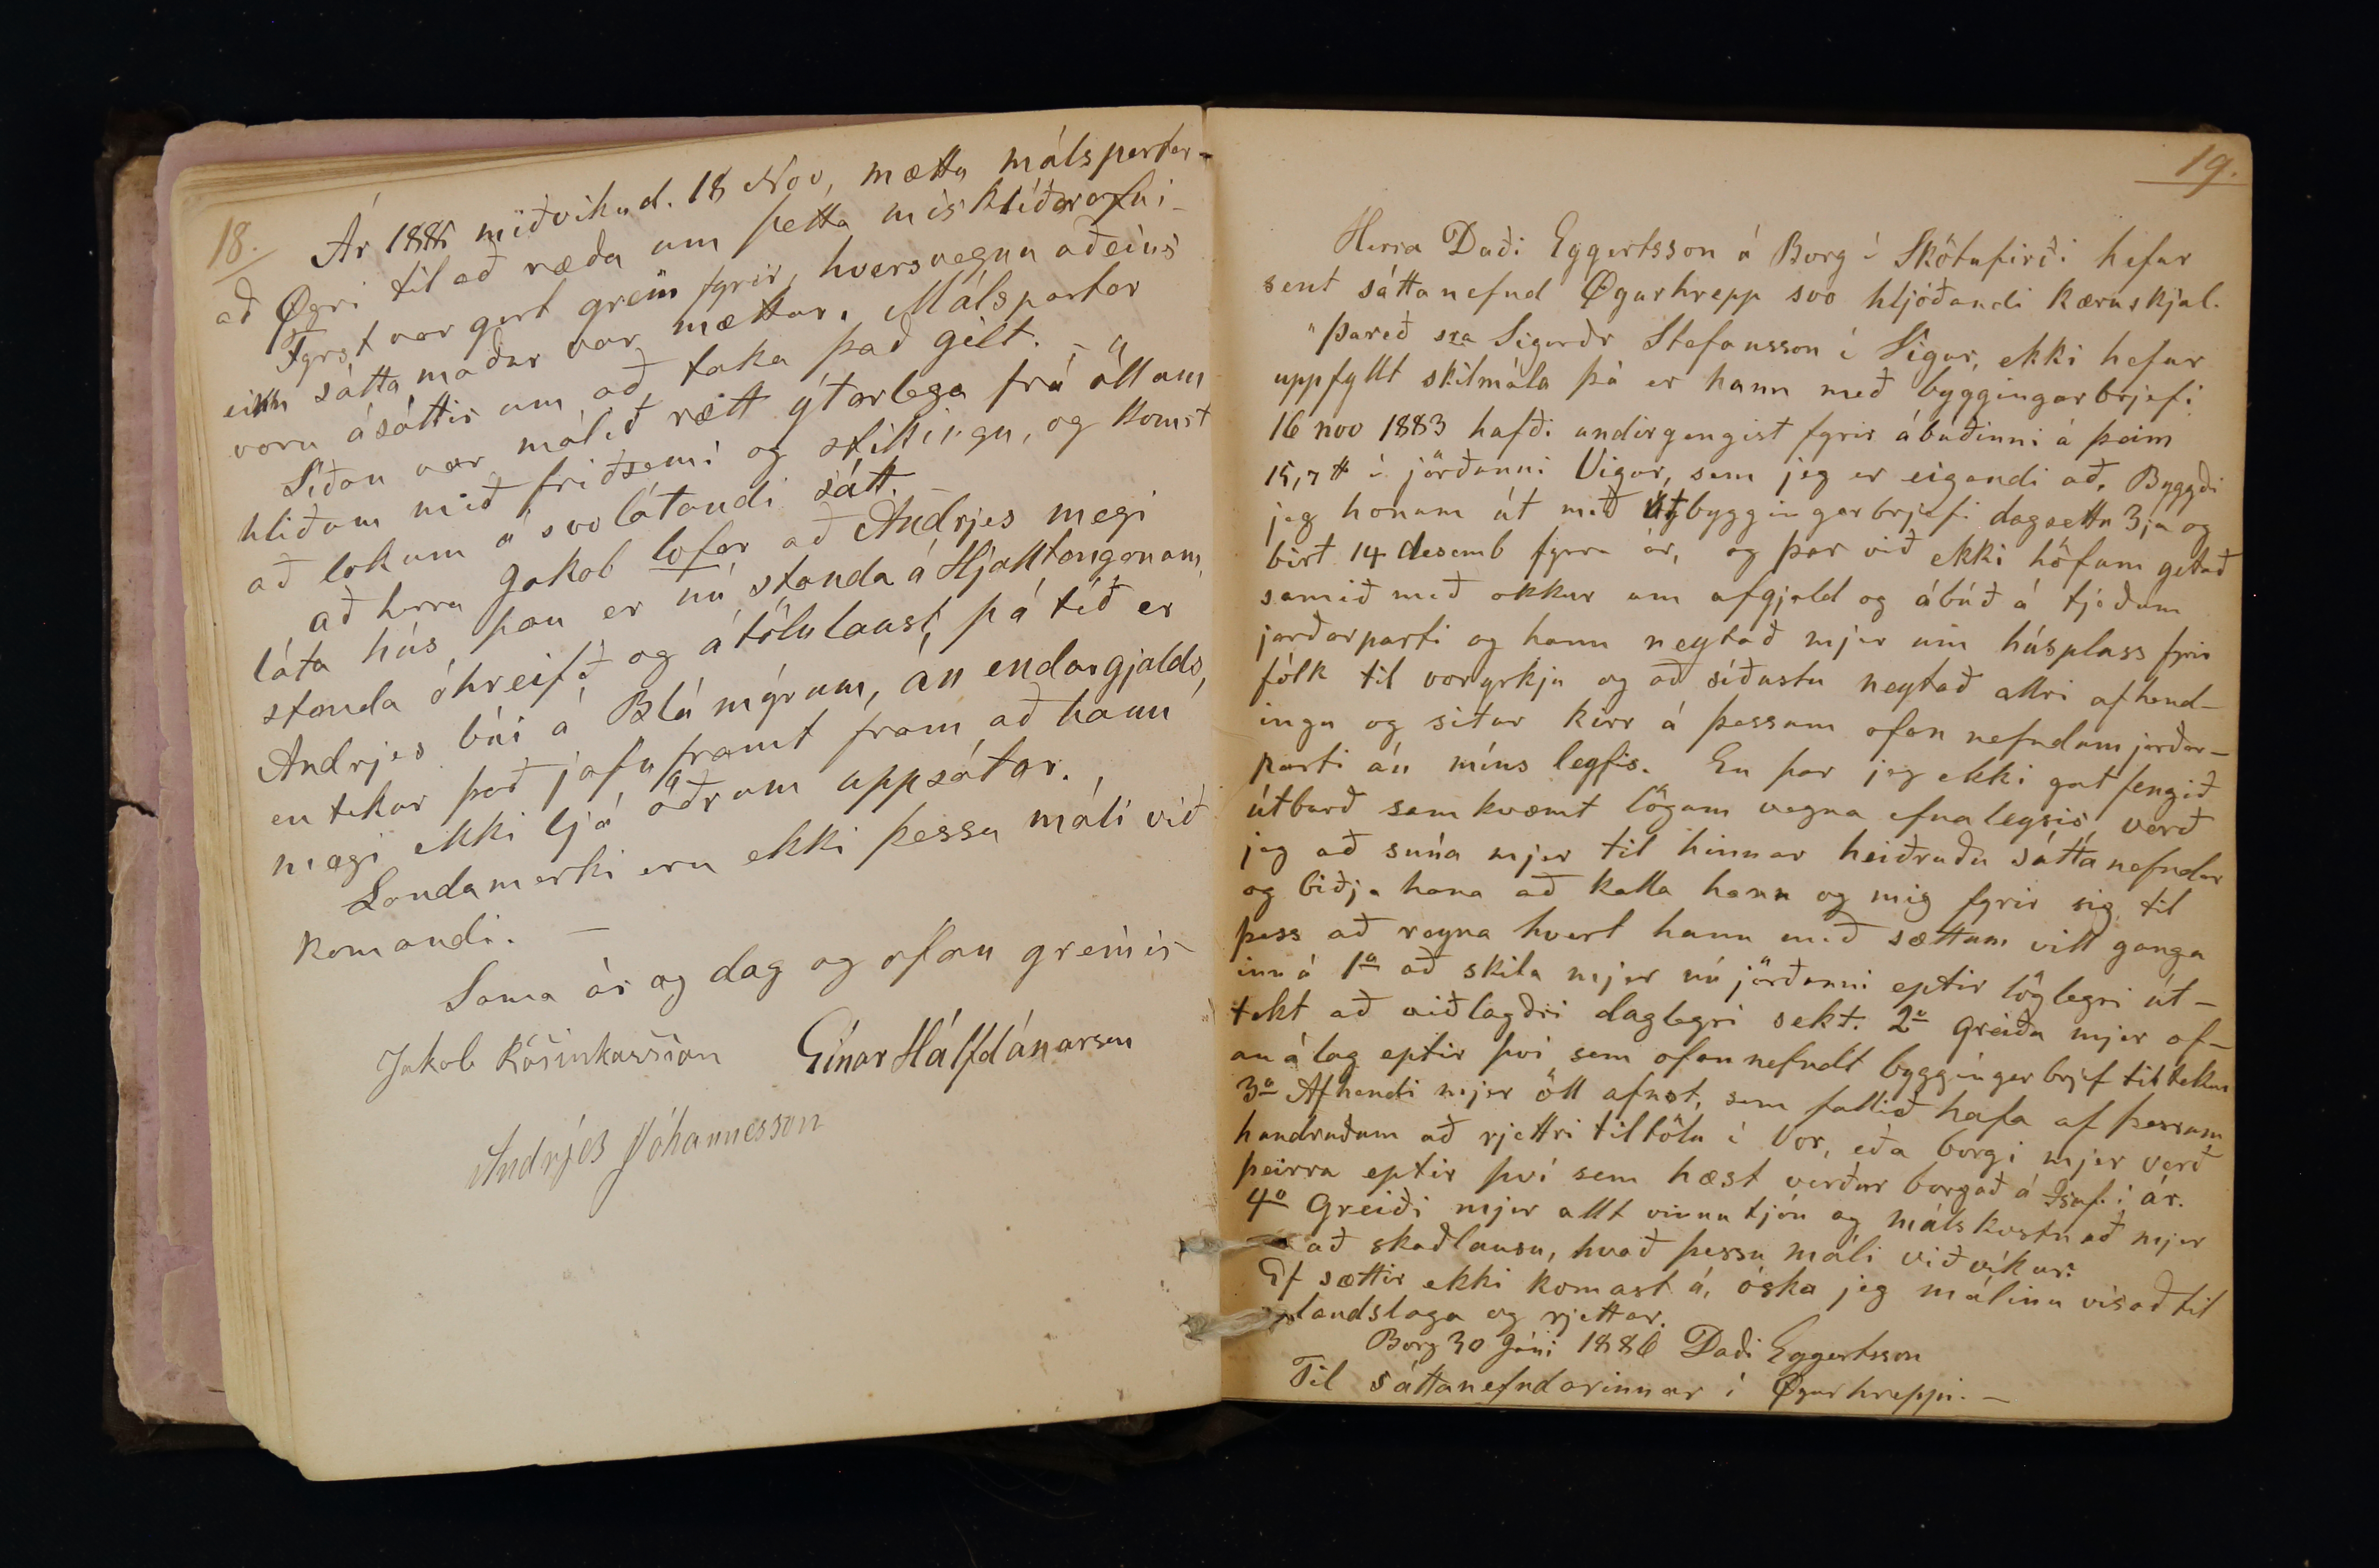 18.
Ár 1885 miðvikud. 18 Nov, mættu málspartar-
að Øgri til að ræða um þetta misklíðarefni-
Fyrst var gert grein fyrir, hversvegna aðeins
einn sáttamaður var mættur. Málspartar
voru ásáttir um að taka það gilt. -
Síðan var málið rætt ýtarlega frá öllum
hliðum með friðsemi og stillingu, og komst
að lokum á svo látandi sátt. -
að herra Jakob lofar að Andrjes megi
láta hús þau er nú standa á Hjalltanganum,
standa óhreifð og átölulaust, þá tíð er
Andrjes búi á Blámýrum, án endurgjalds,
en tekur það jafnframt fram að hann
megi ekki ljá öðrum uppsátur.
Landamerki eru ekki þessu máli við
komandi. -
Sama ár og dag og ofan greinir
Jakob Rósinkarsson Einar Hálfdánarson
Andrjes Jóhannesson
19.
Herra Daði Eggertsson á Borg í Skötufirði hefur
sent sáttanefnd Øgurhrepp svo hljóðandi kæruskjal.
"Þareð sra Sigurðr Stefansson í Vigur, ekki hefur
uppfyllt skilmála þá er hann með byggingarbrjefi
16 nov 1883 hafði undirgengist fyrir ábúðinni á þeim
15,7 # í jörðunni Vigur, sem jeg er eigandi að, Byggði
jeg honum út með útbyggingarbrjefi dagsettu 3ja og
birt 14 desemb fyrra ár, og þar við ekki höfum getað
samið með okkur um afgjald og ábúð á tjeðum
jarðarparti og hann neytað mjer um húsplass fyrir
fólk til voryrkju og að síðustu neytað allri afhend-
ingu og situr kirr á þessum ofan nefndum jarðar-
parti án míns leyfis. En þar jeg ekki gat fengið
útburð samkvæmt lögum vegna efnaleysis verð
jeg að snúa mjer til hinnar heiðruðu sáttanefndar
og biðja hana að kalla hann og mig fyrir sig til
þess að reyna hvert hann með sættum vill ganga
inn á 1º að skila mjer nú jörðunni eptir löglegri út-
tekt að viðlagðri daglegri sekt. 2º greiða mjer of-
an álag eptir því sem ofannefndt byggingarbrjef tiltekur
3º Afhendi mjer öll afnot, sem fallið hafa af þessum
hundruðum að rjettri tiltölu í Vor, eða borgi mjer verð
þeirra eptir því sem hæst verður borgað á Ísaf. í ár.
4º Greiði mjer allt vinnutjón og málskostnað mjer
að skaðlausu, hvað þessu máli viðvíkur.
Ef sættir ekki komast á, óska jeg málinu vísað til
landslaga og rjettar.
Borg 30 Júni 1886 Daði Eggertsson
Til sáttanefndarinnar í Øgurhreppi. -